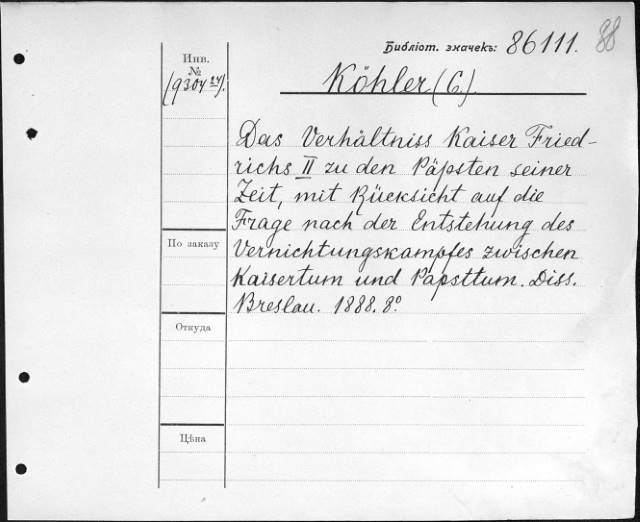 Библіот. значекъ: 86111. 88
Инв.
№
(9304 24).
Köhler (C.)
Das Verhältniss Kaiser Fried-
richs II zu den Päpsten seiner
Zeit, mit Rücksicht auf die
Frage nach der Entstehung des
Vernichtungskampfes zwischen
Kaisertum und Papsttum. Diss.
Breslau. 1888. 8°
По заказу
Откуда
Цѣна